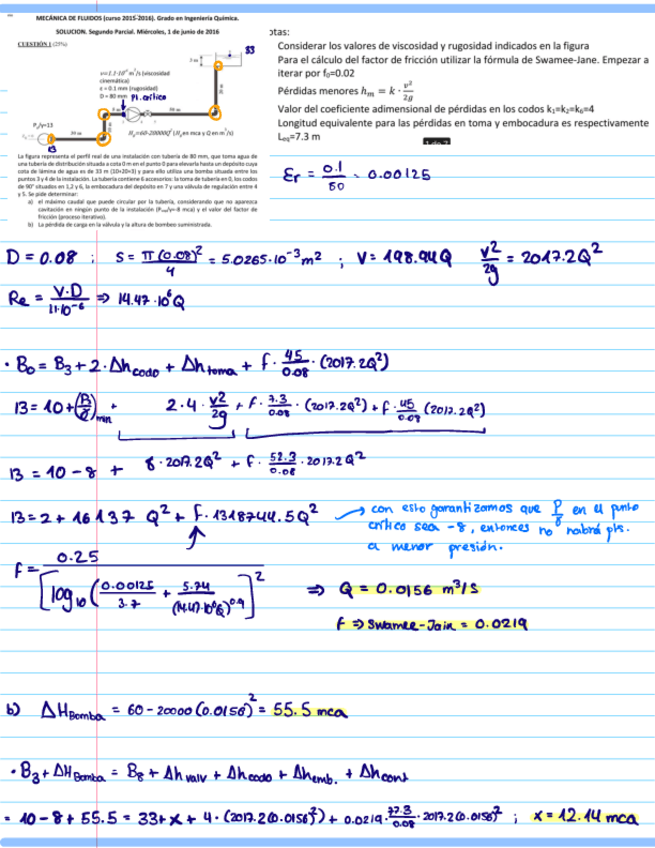 MECÁNICA DE FLUIDOS (curso 2015-2016). Grado en Ingeniería Química.
SOLUCION. Segundo Parcial. Miércoles, 1 de junio de 2016
CUESTIÓN 1 (25%)
ν=1.1·10⁻⁶ m²/s (viscosidad
cinemática)
ε = 0.1 mm (rugosidad)
D = 80 mm
Pt. crítico
33
P₀/γ=13
13
H_B=60-20000Q² (H_B en mca y Q en m³/s)
La figura representa el perfil real de una instalación con tubería de 80 mm, que toma agua de
una tubería de distribución situada a cota 0 m en el punto 0 para elevarla hasta un depósito cuya
cota de lámina de agua es de 33 m (10+20+3) y para ello utiliza una bomba situada entre los
puntos 3 y 4 de la instalación. La tubería contiene 6 accesorios: la toma de tubería en 0, los codos
de 90° situados en 1,2 y 6, la embocadura del depósito en 7 y una válvula de regulación entre 4
y 5. Se pide determinar:
a) el máximo caudal que puede circular por la tubería, considerando que no aparezca
cavitación en ningún punto de la instalación (P_min/γ=-8 mca) y el valor del factor de
fricción (proceso iterativo).
b) La pérdida de carga en la válvula y la altura de bombeo suministrada.
otas:
Considerar los valores de viscosidad y rugosidad indicados en la figura
Para el cálculo del factor de fricción utilizar la fórmula de Swamee-Jane. Empezar a
iterar por f₀=0.02
Pérdidas menores h_m = k · v²/2g
Valor del coeficiente adimensional de pérdidas en los codos k₁=k₂=k₆=4
Longitud equivalente para las pérdidas en toma y embocadura es respectivamente
L_eq=7.3 m
1 de 7
εr = 0.1/80 = 0.00125
D = 0.08 ; S = π(0.08)²/4 = 5.0265·10⁻³ m² ; V = 198.94Q V²/2g = 2017.2Q²
Re = V·D/1.1·10⁻⁶ ⇒ 14.47·10⁶Q
· B₀ = B₃ + 2·Δh codo + Δh toma + f · 45/0.08 · (2017.2Q²)
13 = 10 + (P/γ)min + 2·4 · V²/2g + f · 7.3/0.08 · (2017.2Q²) + f · 45/0.08 (2017.2Q²)
13 = 10 - 8 + 8·2017.2Q² + f · 52.3/0.08 · 2017.2Q²
13 = 2 + 16137 Q² + f · 1318744.5Q² → con esto garantizamos que P/γ en el punto
crítico sea -8, entonces no habrá pts.
a menor presión.
f = 0.25/[log₁₀(0.00125/3.7 + 5.74/(14.47·10⁶Q)^0.9)]² ⇒ Q = 0.0156 m³/s
f ⇒ Swamee-Jain = 0.0219
b) ΔH Bomba = 60 - 20000(0.0156)² = 55.5 mca
· B₃ + ΔH Bomba = B₈ + Δh valv + Δh codo + Δh emb. + Δh cont
= 10 - 8 + 55.5 = 33 + x + 4·(2017.2(0.0156)²) + 0.0219 · 37.3/0.08 · 2017.2(0.0156)² ; x = 12.14 mca